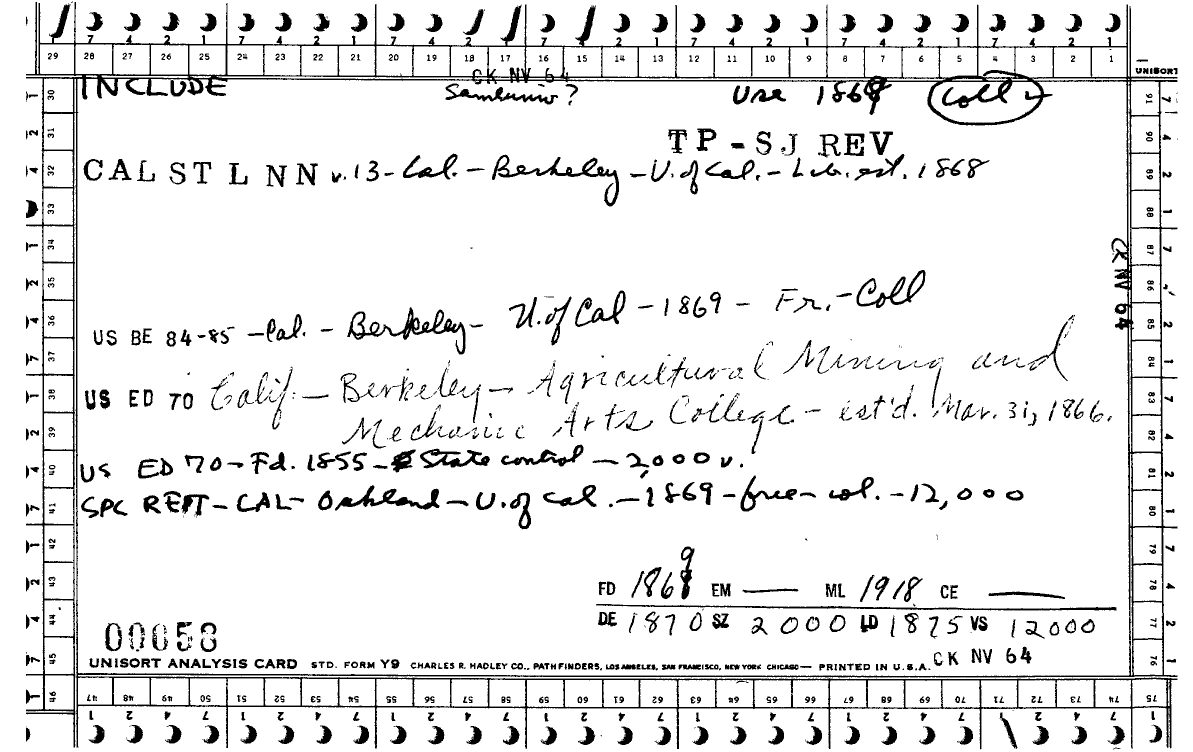 7 4 2 1 7 4 2 1 7 4 2 1 7 4 2 1 7 4 2 1 7 4 2 1
29 28 27 26 25 24 23 22 21 20 19 18 17 16 15 14 13 12 11 10 9 8 7 6 5 4 3 2 1
UNISORT
CK NV 64
INCLUDE
Use 1869
Coll
TP-SJ REV
CAL ST L NN v. 13-Cal.-Berkeley-U. of Cal.-Lib. est. 1868
CK NV 64
US BE 84-85-Cal.-Berkeley-U. of Cal-1869-Fr.-Coll
US ED 70 Calif.-Berkeley-Agricultural Mining and
Mechanic Arts College-est'd. Mar. 31, 1866.
US ED 70-Fd. 1855-State control-2,000 v.
SPC REPT-CAL-Oakland-U. of Cal.-1869-free-col.-12,000
9
FD 1868 EM — ML 1918 CE —
DE 1870 SZ 2000 LD 1875 VS 12000
00058
CK NV 64
UNISORT ANALYSIS CARD STD. FORM Y9 CHARLES R. HADLEY CO., PATHFINDERS, LOS ANGELES, SAN FRANCISCO, NEW YORK CHICAGO— PRINTED IN U.S.A.
47 48 49 50 51 52 53 54 55 56 57 58 59 60 61 62 63 64 65 66 67 68 69 70 71 72 73 74 75